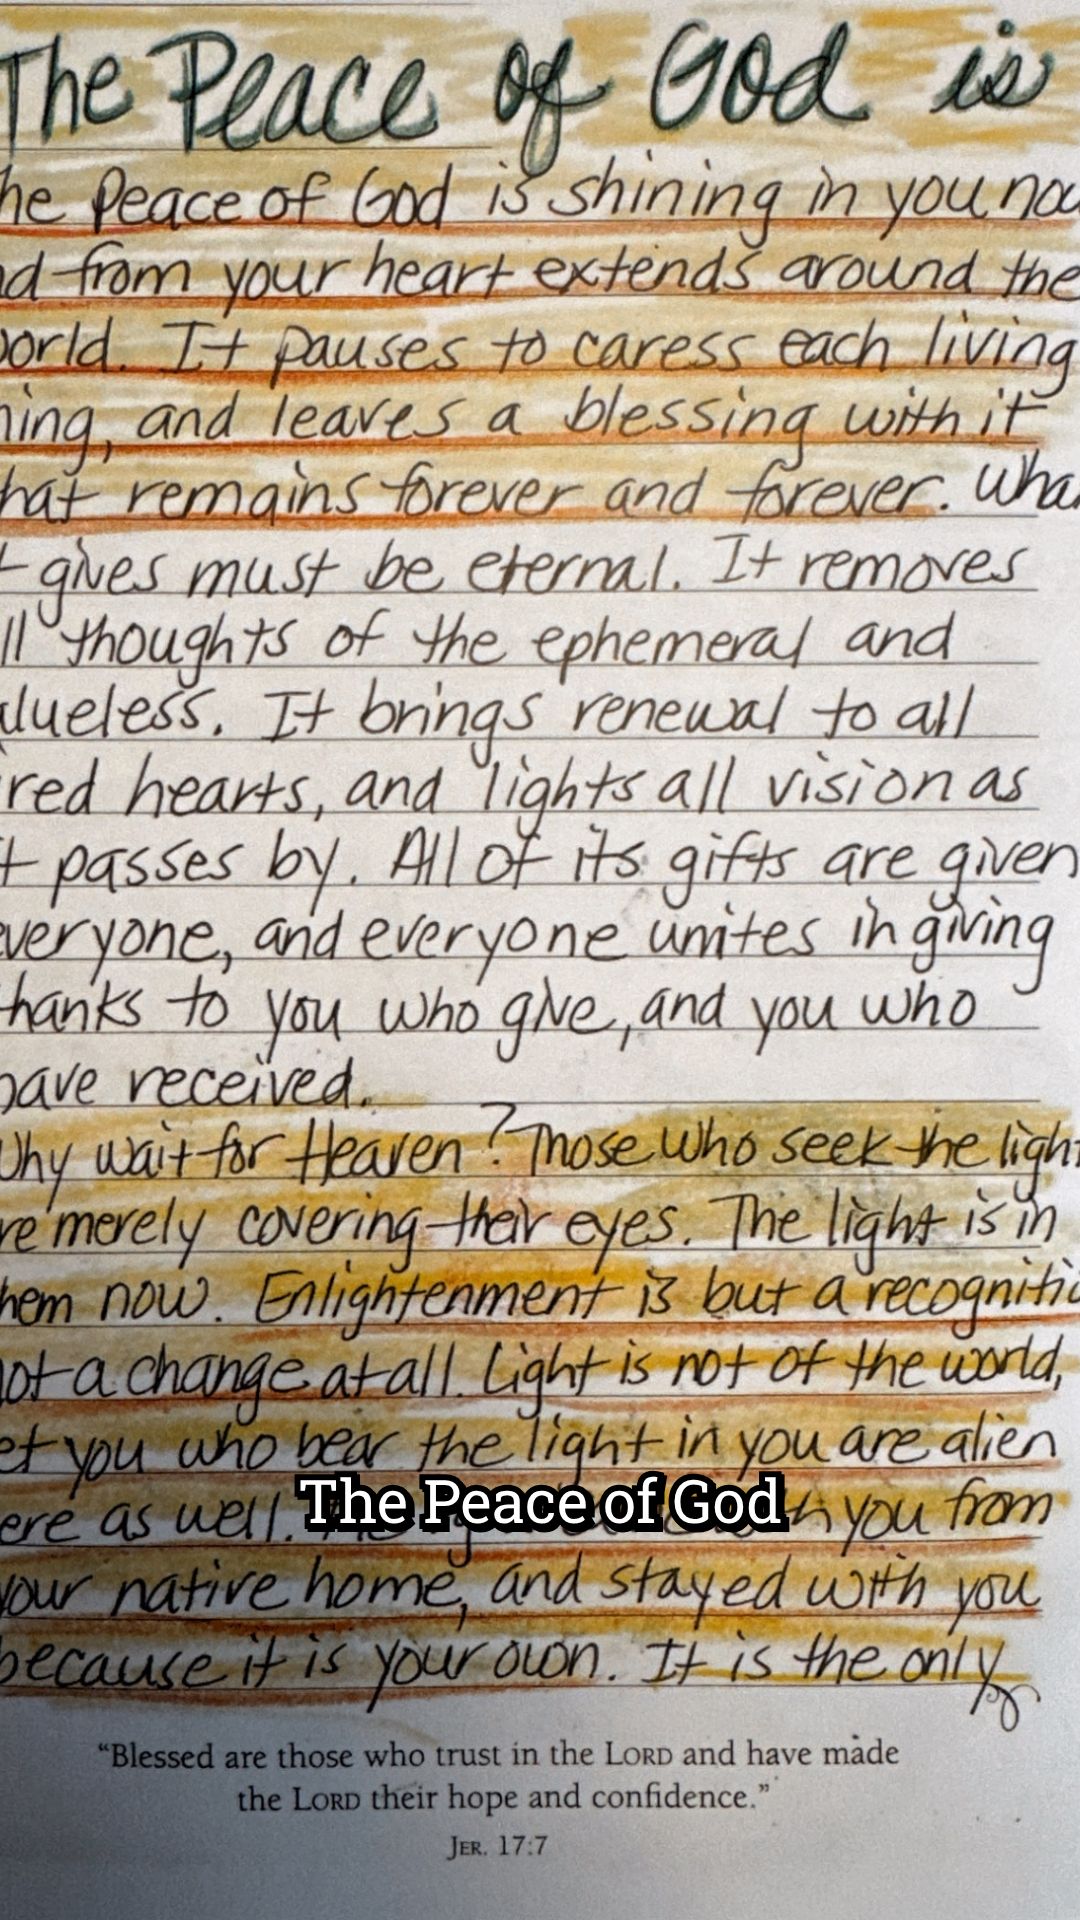 The Peace of God is
he Peace of God is shining in you now
nd from your heart extends around the
orld. It pauses to caress each living
hing, and leaves a blessing with it
hat remains forever and forever. What
t gives must be eternal. It removes
ll thoughts of the ephemeral and
alueless. It brings renewal to all
ired hearts, and lights all vision as
t passes by. All of its gifts are given
everyone, and everyone unites in giving
thanks to you who give, and you who
have received.
Why wait for Heaven? Those who seek the light
re merely covering their eyes. The light is in
hem now. Enlightenment is but a recognitio
not a change at all. Light is not of the world,
et you who bear the light in you are alien
ere as well. you from
The Peace of God
your native home, and stayed with you
because it is your own. It is the only
“Blessed are those who trust in the LORD and have made
the LORD their hope and confidence.”
JER. 17:7